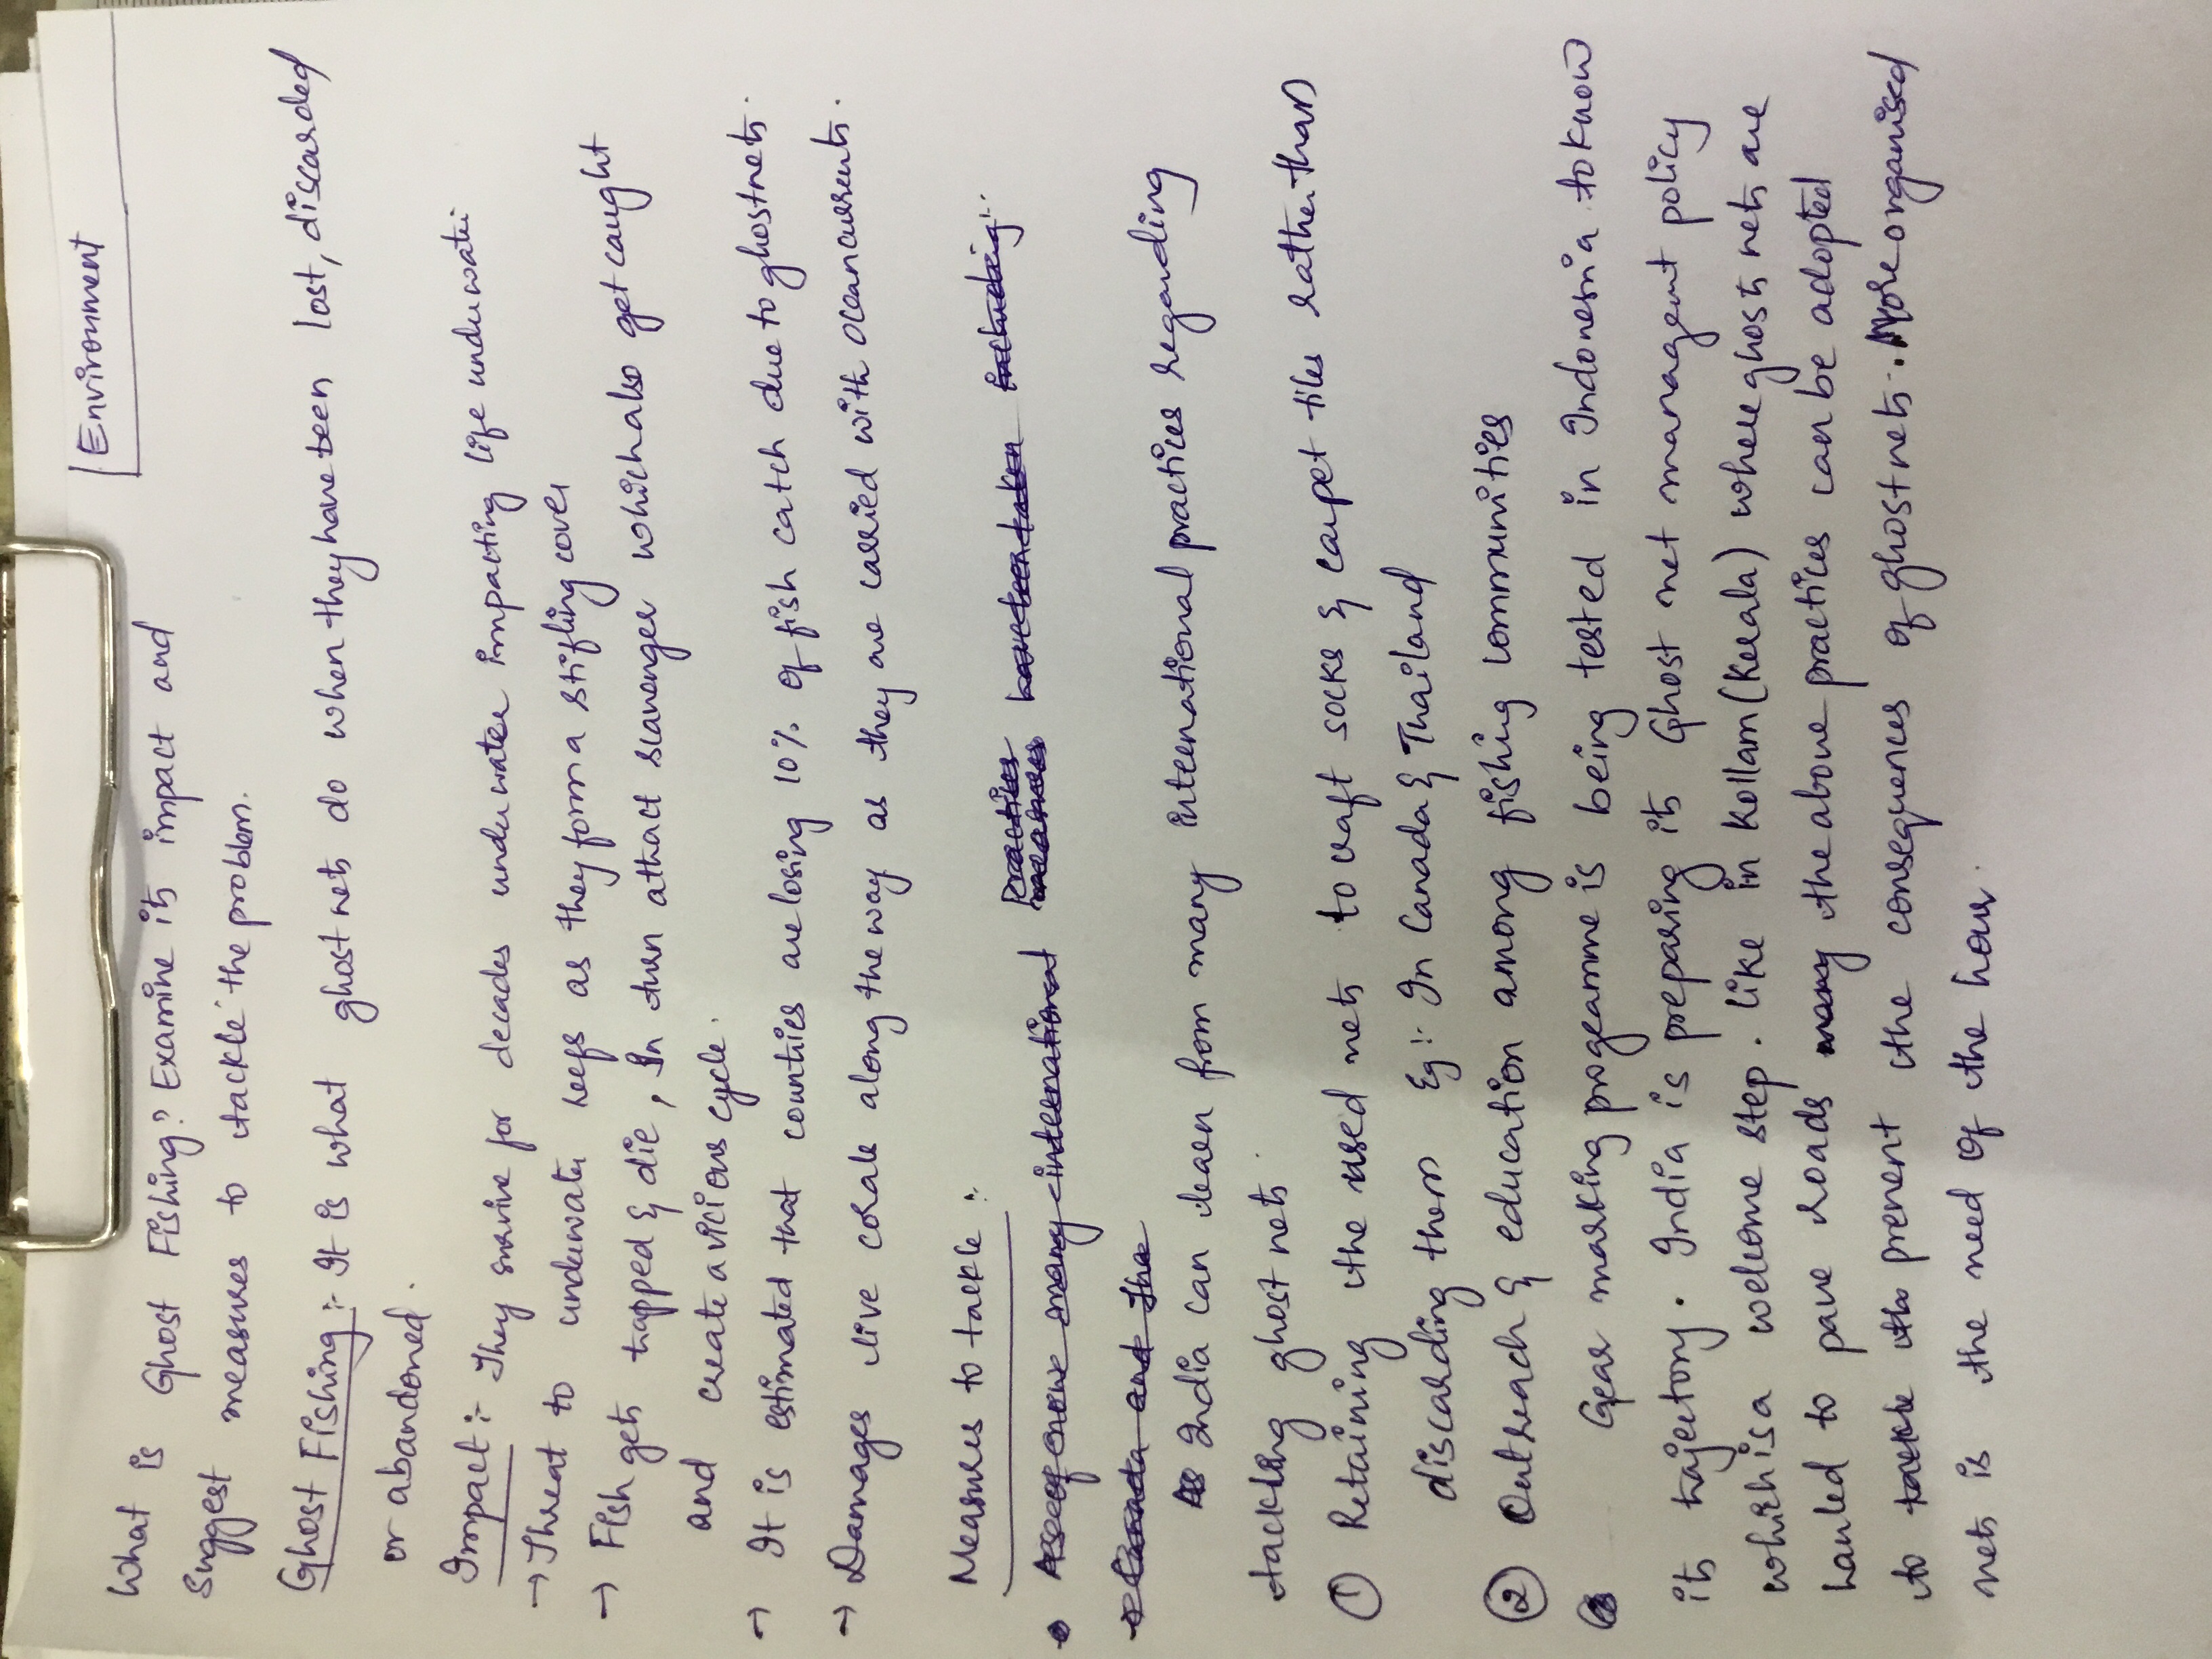 Environment
What is Ghost Fishing? Examine its impact and
suggest measures to tackle the problem.
Ghost Fishing :- It is what ghost nets do when they have been lost, discarded
or abandoned.
Impact :- They survive for decades under water impacting life underwater.
→ Threat to underwater reefs as they form a stifling cover
→ Fish gets trapped & die, In turn attract scavenger which also get caught
and create a vicious cycle.
→ It is estimated that countries are losing 10% of fish catch due to ghost nets.
→ Damages live corals along the way as they are carried with ocean currents.
Measures to tackle :-
many international Practices have been taken including:-
Canada and the
As India can learn from many international practices regarding
tackling ghost nets.
① Retaining the used nets to craft socks & carpet tiles rather than
discarding them Eg:- In Canada & Thailand
② Outreach & education among fishing communities
③ Gear marking programme is being tested in Indonesia to know
its trajectory. India is preparing its Ghost net management policy
which is a welcome step. Like in Kollam (Kerala) where ghosts nets are
hauled to pave roads many the above practices can be adopted
to tackle the prevent the consequences of ghost nets. More organised
nets is the need of the hour.